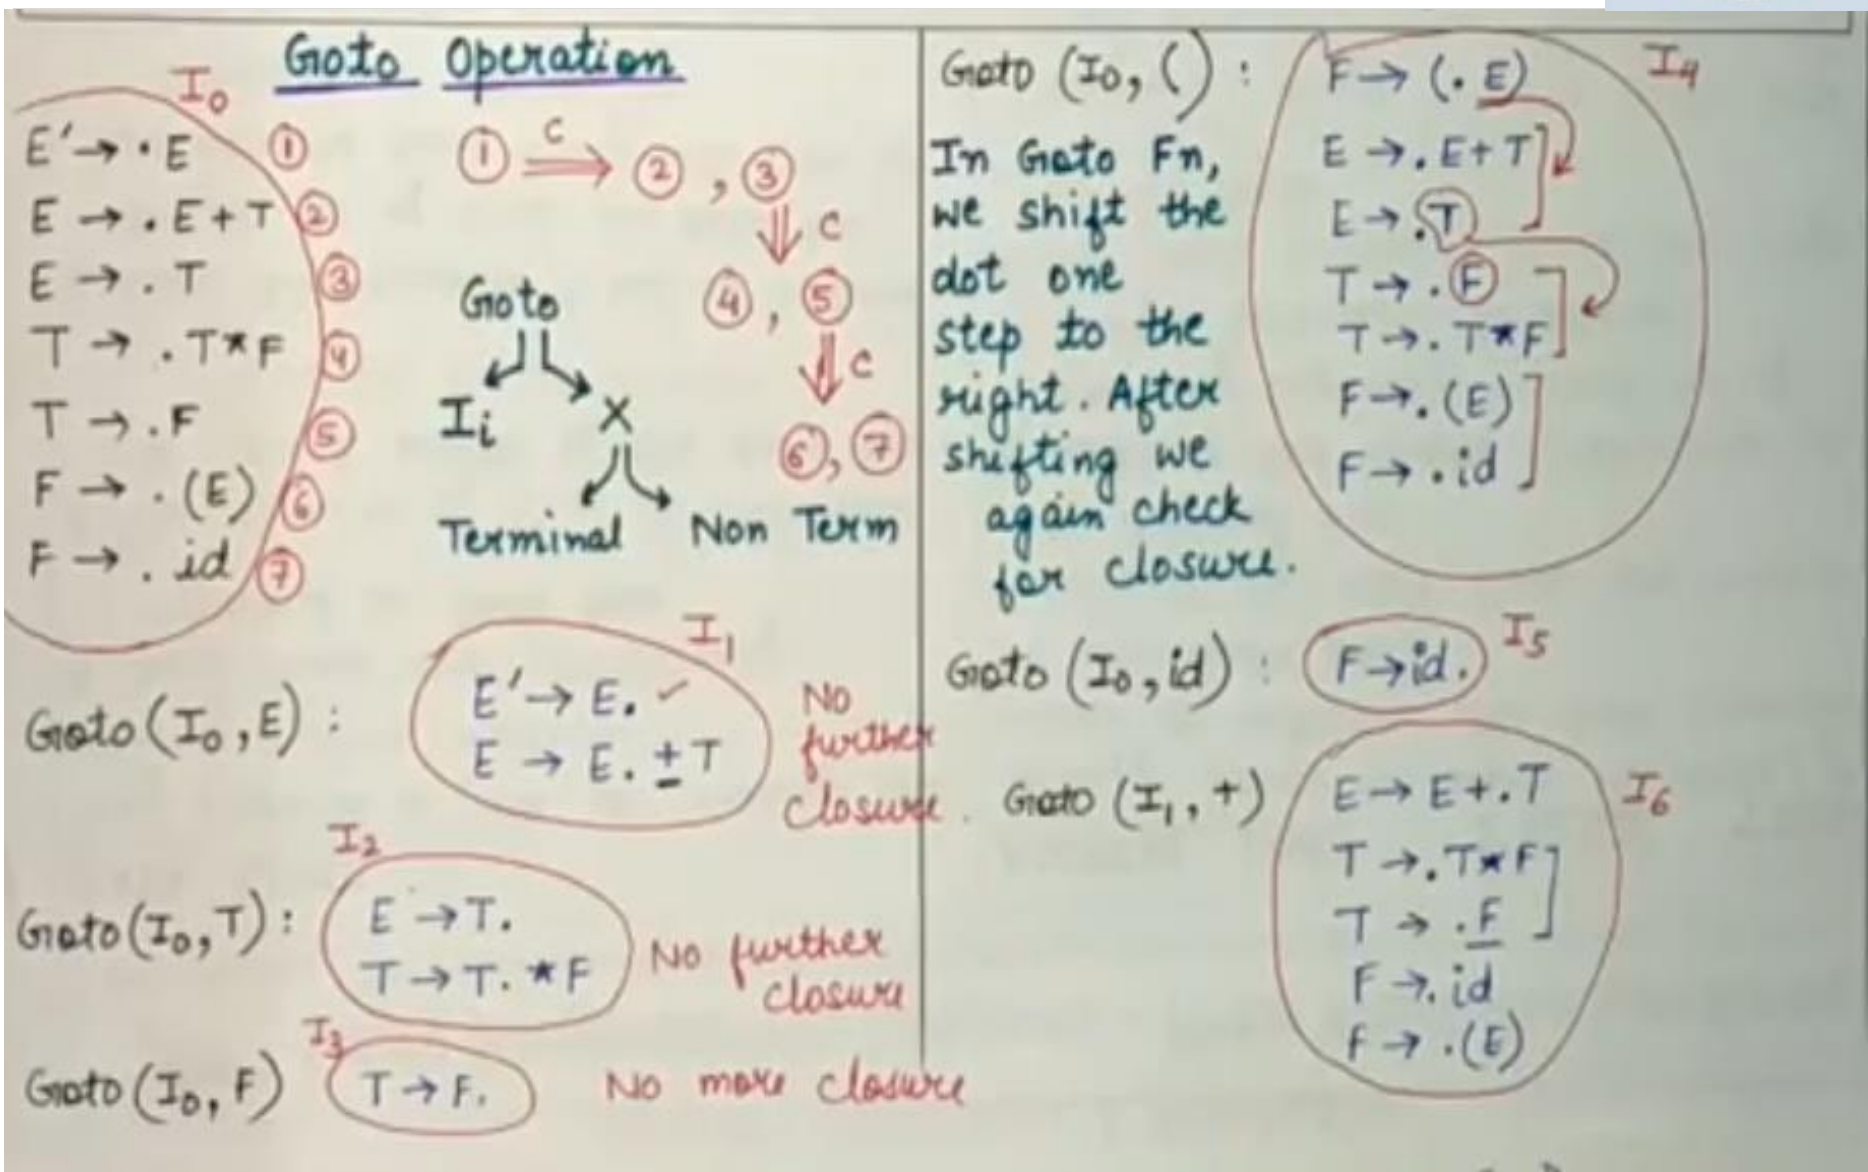 Goto Operation
I₀
E' → . E ①
E → . E + T ②
E → . T ③
T → . T * F ④
T → . F ⑤
F → . (E) ⑥
F → . id ⑦
① C ⇒ ② , ③
⇓ C
④ , ⑤
⇓ C
⑥ , ⑦
Goto
Iᵢ X
Terminal Non Term
Goto (I₀, E) :
I₁
E' → E. ✓
E → E. + T
No
further
closure.
Goto (I₀, T) :
I₂
E → T.
T → T. * F
No further
closure
Goto (I₀, F)
I₃
T → F.
No more closure
Goto (I₀, ( ) :
In Goto Fn,
we shift the
dot one
step to the
right. After
shifting we
again check
for closure.
I₄
F → (. E)
E → . E + T
E → . T
T → . F
T → . T * F
F → . (E)
F → . id
Goto (I₀, id) : F → id. I₅
Goto (I₁, +)
I₆
E → E + . T
T → . T * F
T → . F
F → . id
F → . (E)